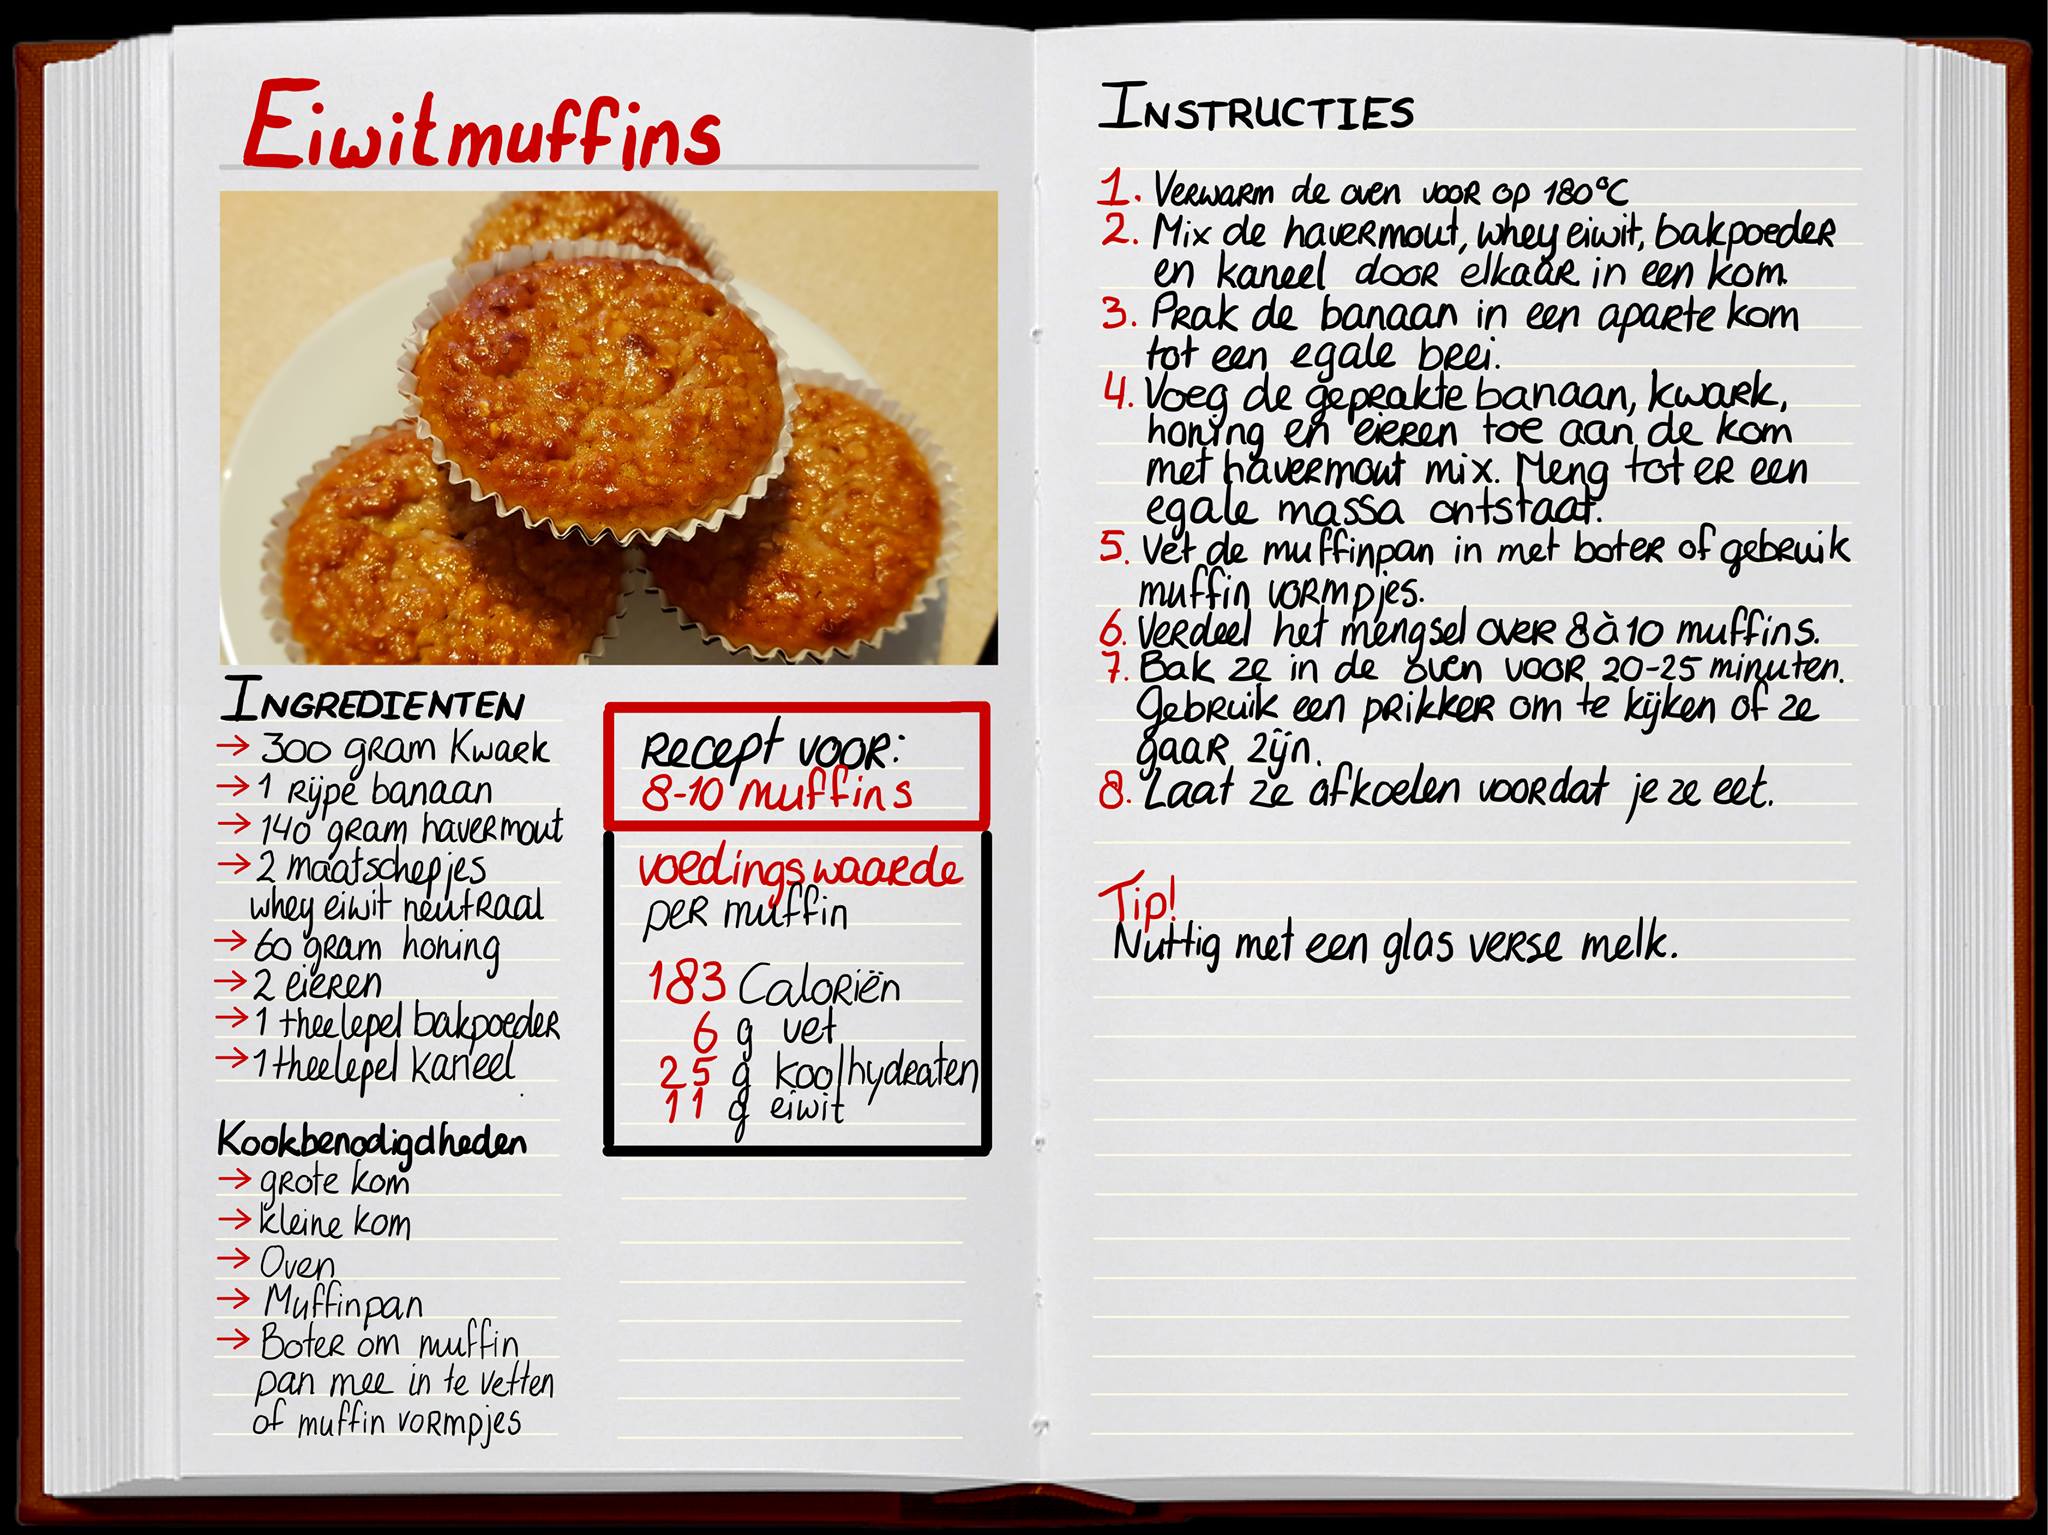 Eiwitmuffins
INGREDIENTEN
→ 300 gram Kwark
→ 1 rijpe banaan
→ 140 gram havermout
→ 2 maatschepjes
whey eiwit neutraal
→ 60 gram honing
→ 2 eieren
→ 1 theelepel bakpoeder
→ 1 theelepel kaneel
Kookbenodigdheden
→ grote kom
→ kleine kom
→ Oven
→ Muffinpan
→ Boter om muffin
pan mee in te vetten
of muffin vormpjes
Recept voor:
8-10 muffins
voedingswaarde
per muffin
183 Caloriën
6 g vet
25 g koolhydraten
11 g eiwit
INSTRUCTIES
1. Verwarm de oven voor op 180°C
2. Mix de havermout, whey eiwit, bakpoeder
en kaneel door elkaar in een kom.
3. Prak de banaan in een aparte kom
tot een egale brei.
4. Voeg de geprakte banaan, kwark,
honing en eieren toe aan de kom
met havermout mix. Meng tot er een
egale massa ontstaat.
5. Vet de muffinpan in met boter of gebruik
muffin vormpjes.
6. Verdeel het mengsel over 8 à 10 muffins.
7. Bak ze in de oven voor 20-25 minuten.
Gebruik een prikker om te kijken of ze
gaar zijn.
8. Laat ze afkoelen voordat je ze eet.
Tip!
Nuttig met een glas verse melk.